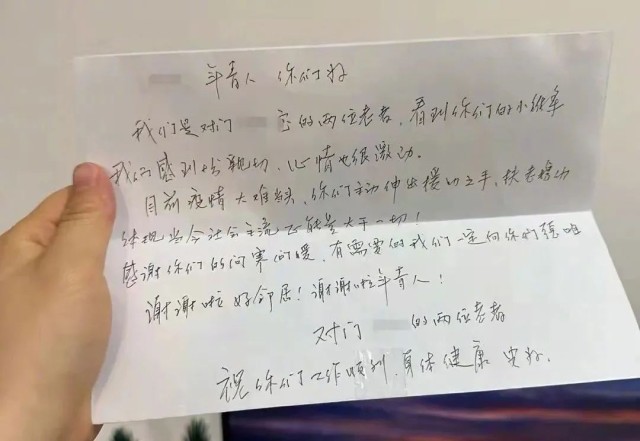 年青人 你们好
我们是对门 室的两位老者，看到你们的小纸条
我们感到分外亲切，心情也很激动。
目前疫情大难当头，你们主动伸出援助之手，扶老携幼
体现当今社会主流正能量大于一切！
感谢你们的问寒问暖，有需要的我们一定向你们
谢谢啦 好邻居！谢谢啦年青人！
对门 的两位老者
祝你们工作顺利，身体健康 安好。